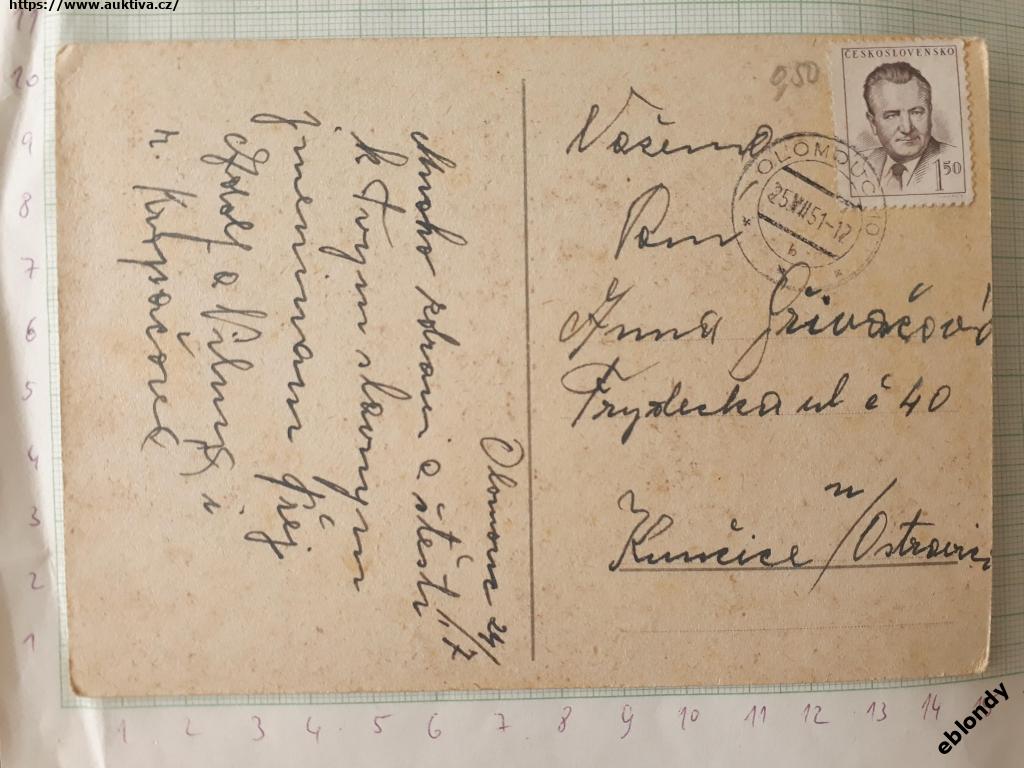 https://www.auktiva.cz/
Olomouc 24/7
Mnoho zdraví a štěstí
k Tvým slavným
jmeninám přej
a
Krupačovi
0,50
ČESKOSLOVENSKO
1 50
OLOMOUC
25.VII.51-12
b
Vážená
Paní
Anna Dřivačová
Frydecka ul č 40
Kunčice n/Ostravicí
11
10
9
8
7
6
5
4
3
2
1
1 2 3 4 5 6 7 8 9 10 11 12 13 14
eblondy